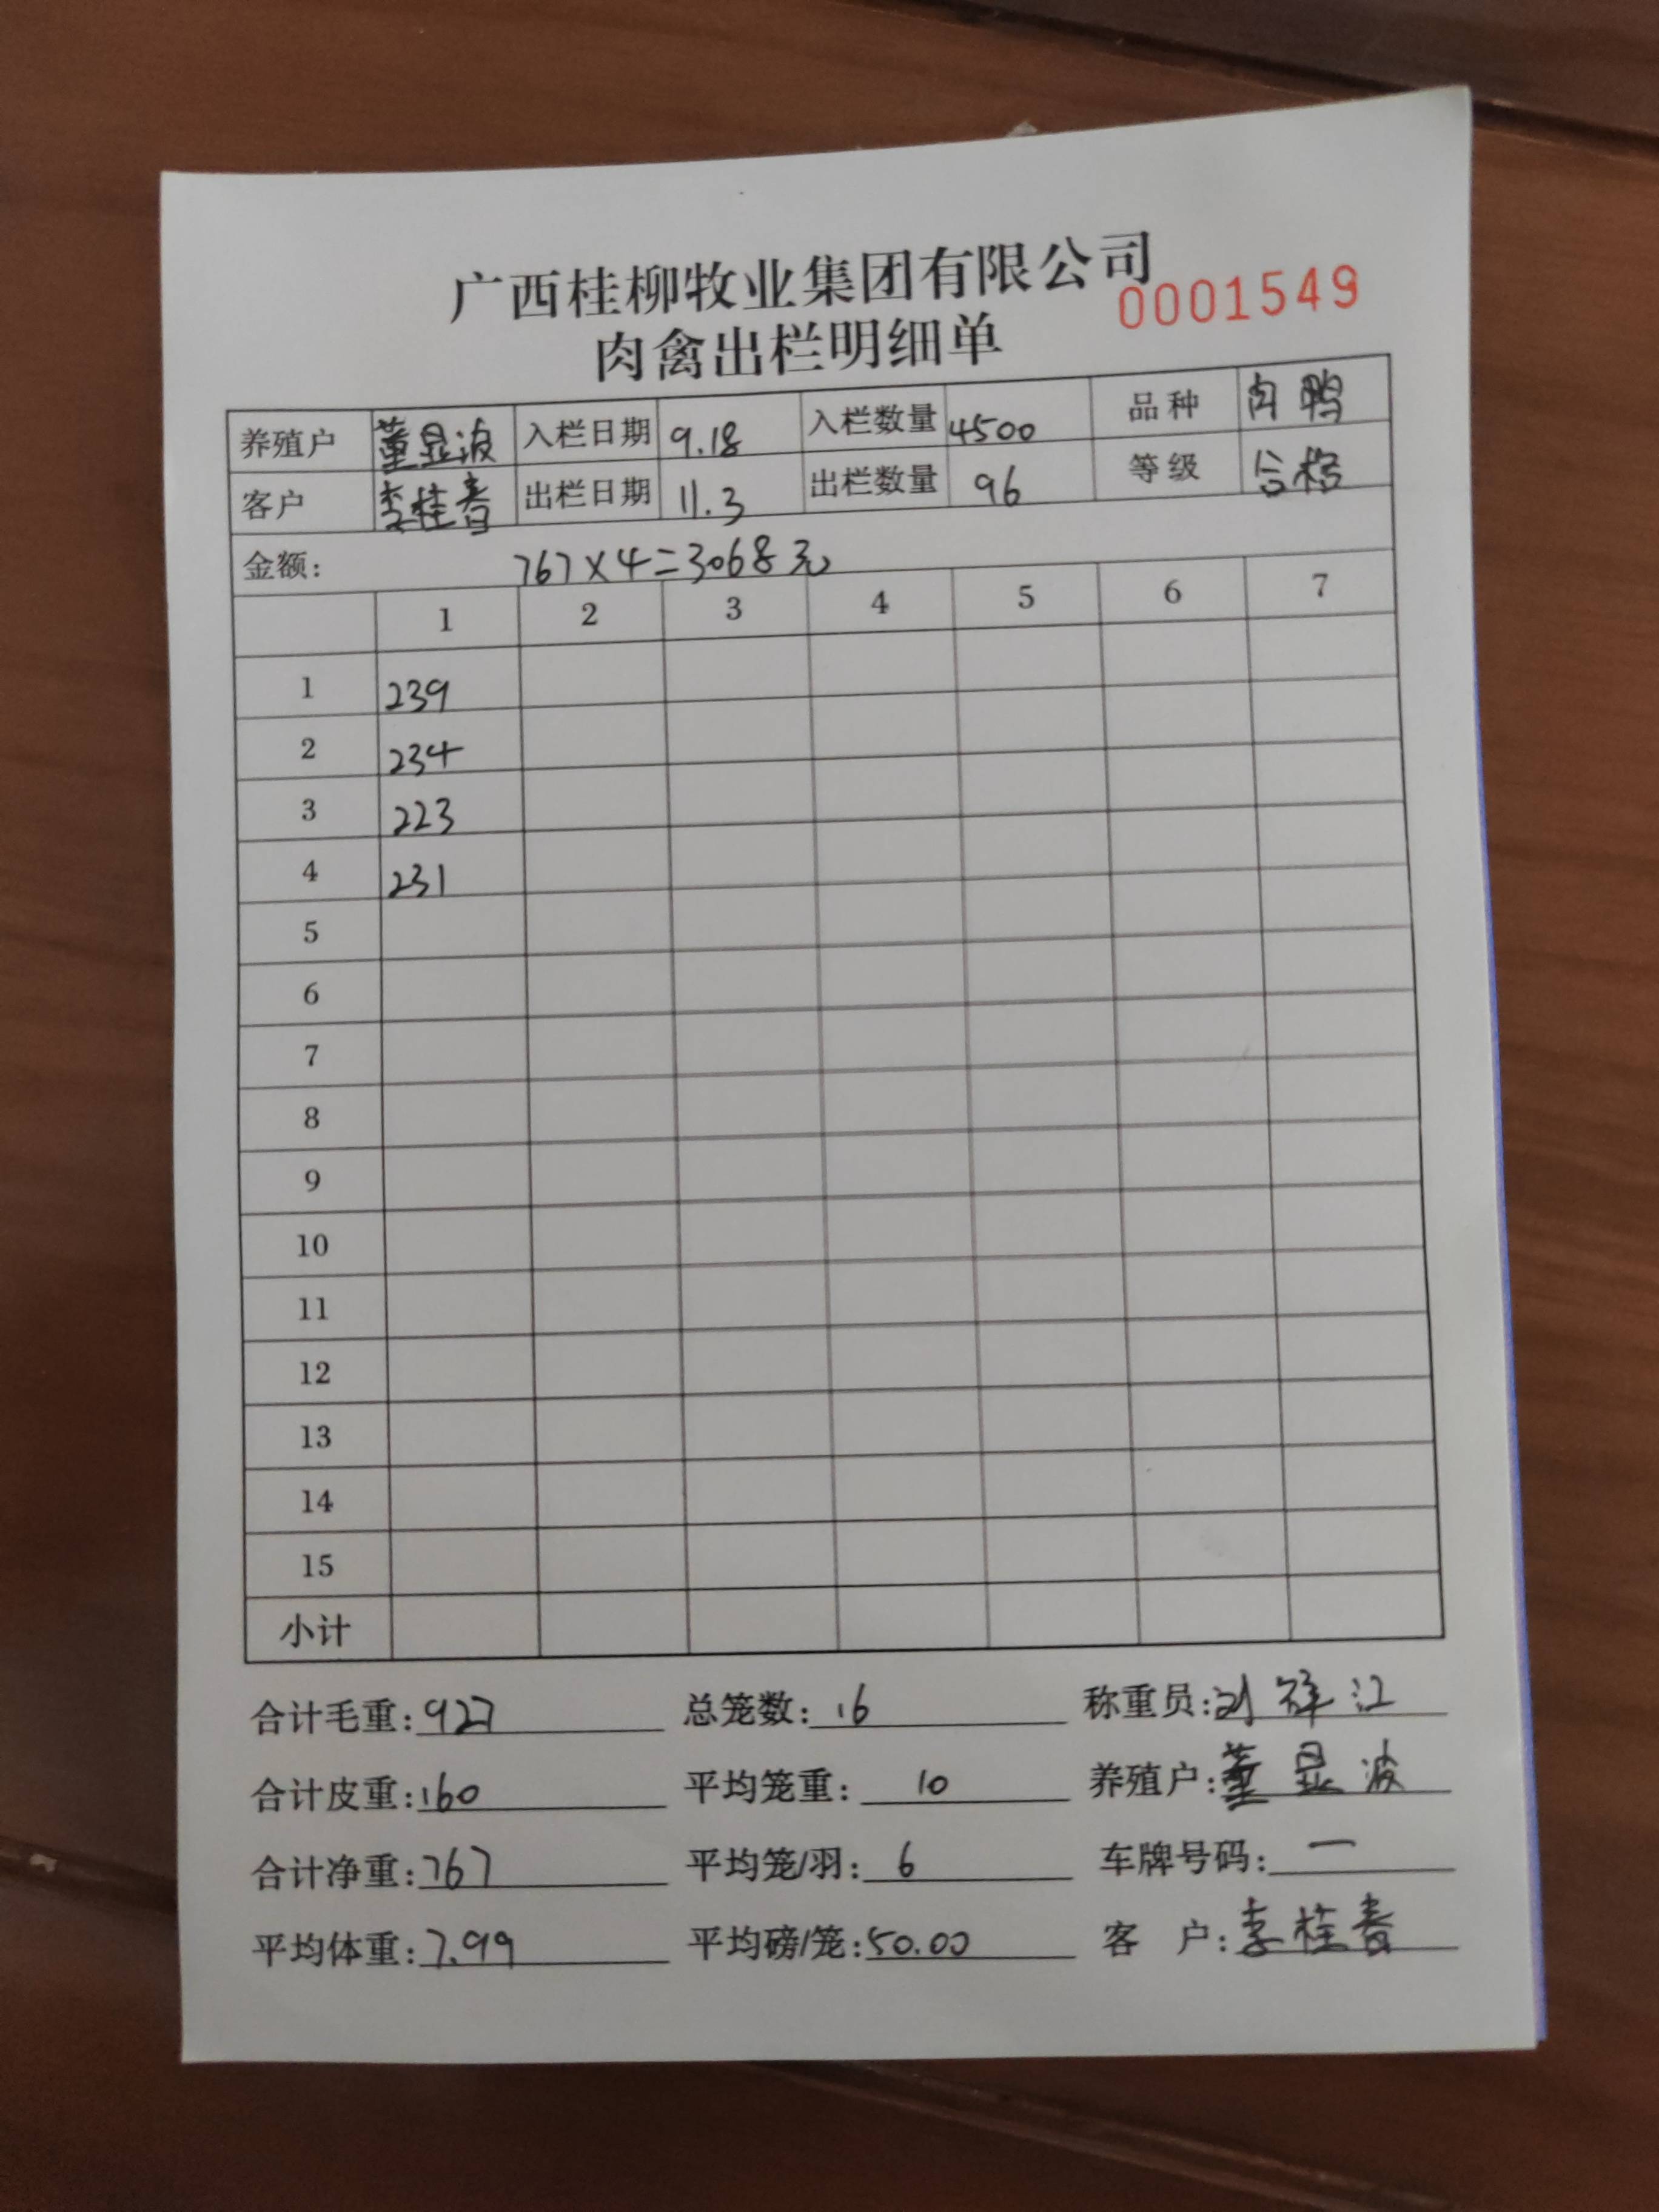 广西桂柳牧业集团有限公司
0001549
肉禽出栏明细单
养殖户 董显波 入栏日期 9.18 入栏数量 4500 品种 肉鸭
客户 李桂春 出栏日期 11.3 出栏数量 96 等级 合格
金额: 767×4=3068元
1 2 3 4 5 6 7
1 239
2 234
3 223
4 231
5
6
7
8
9
10
11
12
13
14
15
小计
合计毛重:927 总笼数:16 称重员:刘祥江
合计皮重:160 平均笼重: 10 养殖户:董显波
合计净重:767 平均笼/羽: 6 车牌号码: 一
平均体重:7.99 平均磅/笼:50.00 客 户:李桂春